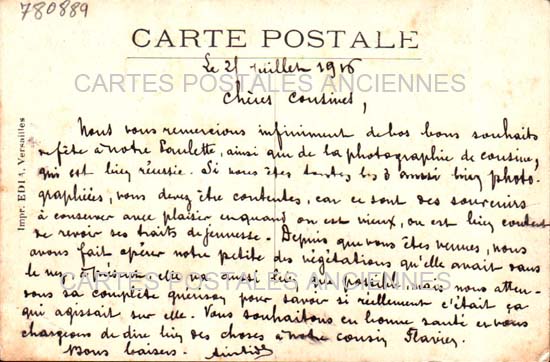 780889
CARTE POSTALE
Le 21 juillet 1916
CARTES POSTALES ANCIENNES
Chères Cousines,
Impr. EDIA, Versailles
Nous vous remercions infiniment de vos bons souhaits
de fête à notre Paulette, ainsi que de la photographie de cousine,
qui est bien réussie. Si vous êtes toutes les 3 aussi bien photo-
graphiées, vous devez être contentes, car ce sont des souvenirs
CARTES POSTALES ANCIENNES
à conserver avec plaisir quand on est vieux, on est bien content
de revoir ses traits de jeunesse. Depuis que vous êtes venues, nous
avons fait opérer notre petite des végétations qu'elle avait dans
le nez, à présent elle va aussi bien que possible mais nous atten-
CARTES POSTALES ANCIENNES
dons sa complète guérison pour savoir si réellement c'était ça
qui agissait sur elle. Vous souhaitons en bonne santé en vous
chargeons de dire bien des choses à notre cousin Flavien.
Bons baisers.